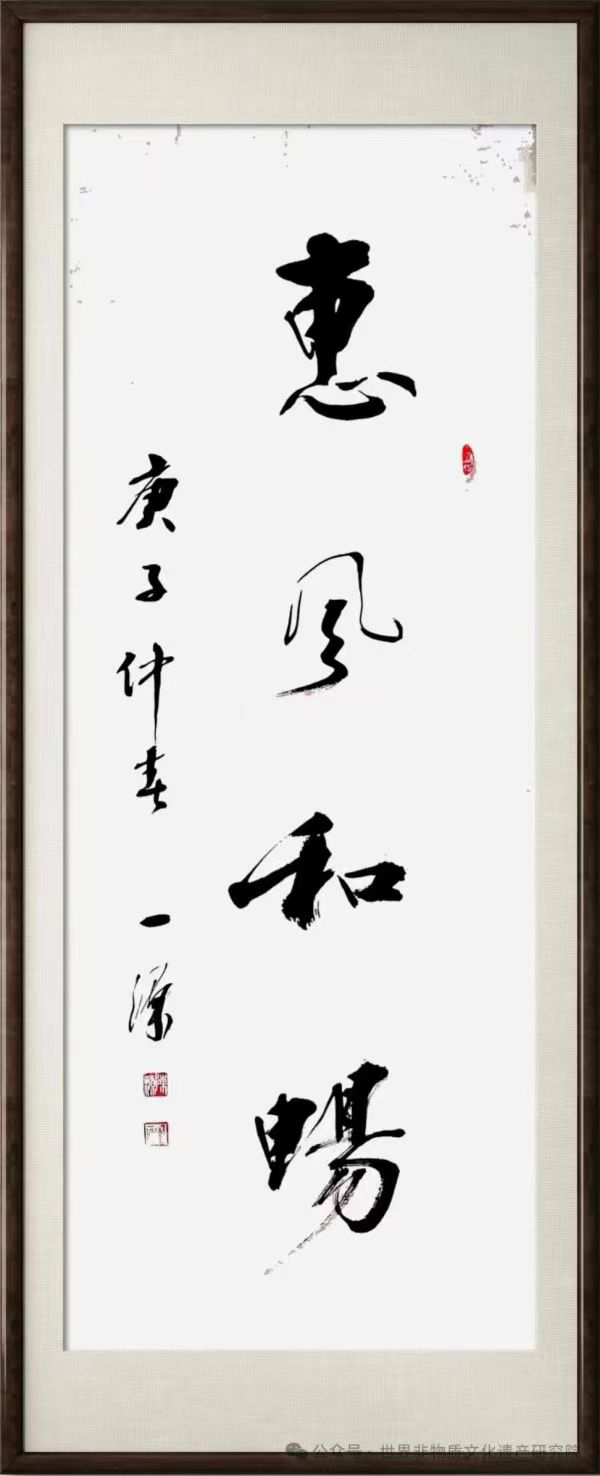 惠风和畅
庚子仲春 一
公众号·世界非物质文化遗产研究院